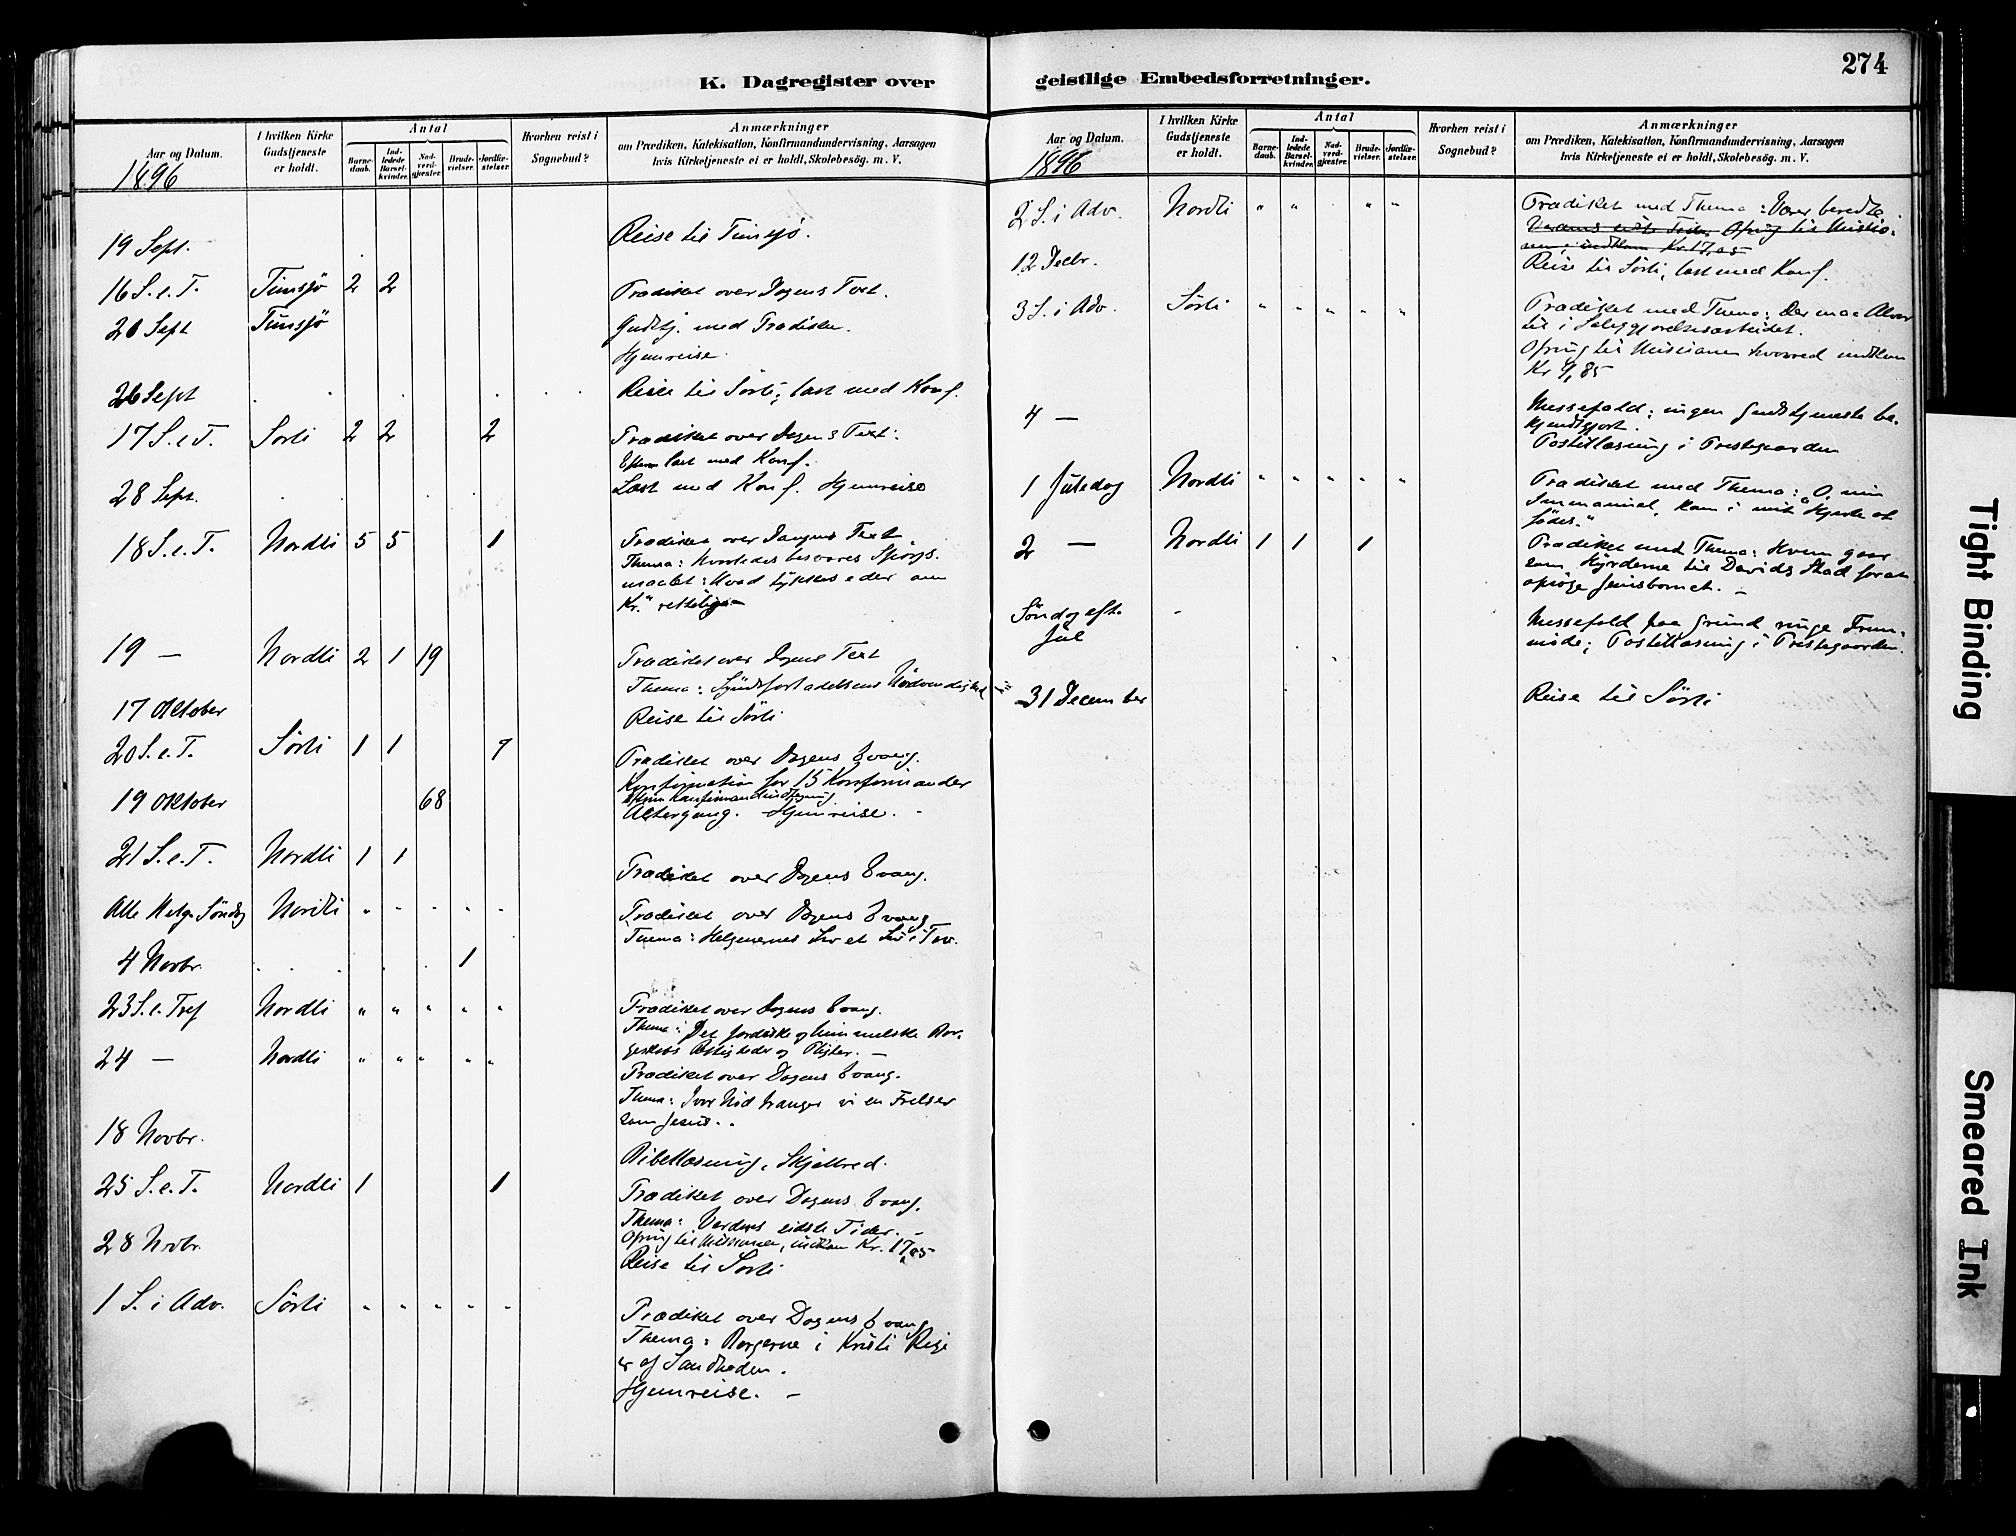 K. Dagregister over
Aar og Datum.
I hvilken Kirke Gudstjeneste er holdt.
Antal
Barne-daab.
Ind-ledede Barsel-kvinder.
Nad-verd-gjester.
Brude-vielser.
Jordfæ-stelser.
Hvorhen reist i Sognebud?
Anmærkninger
om Prædiken, Katekisation, Konfirmandundervisning, Aarsagen
hvis Kirketjeneste ei er holdt, Skolebesög. m. V.
1896
19 Sept. Reise til Tunsjø.
16 S. e. T. Tunsjø 2 2 Prædiket over Dagens Text.
20 Sept Tunsjø Gudstj. med Prædiken.
Hjemreise.
26 Sept Reise til Sørli; læst med Konf.
17 S. e T. Sørli 2 2 2 Prædiket over Dagens Text.
læst med Konf.
28 Sept. Læst med Konf. Hjemreise
18 S. e. T. Nordli 5 5 1 Prædiket over Dagens Text.
Thema: Hvorledes besvares Spørgs-
maalet: Hvad tykkes eder om
Kr." rettelig
19 — Nordli 2 1 19 Prædiket over Dagens Text
Thema: Syndsforladelsens Nødvendighed
17 Oktober Reise til Sørli
20 S. e. T. Sørli 1 1 7 Prædiket over Dagens Evang.
Konfirmation for 15 Konfirmander
19 Oktober 68
Altergang. Hjemreise. -
21 S. e. T. Nordli 1 1 Prædiket over Dagens Evang.
Alle Helg. Søndag Nordli " " " " " Prædiket over Dagens Evang
Thema: Helgenernes Liv et Liv i Tro.
4 Novbr. 1
23 S. e. Tref Nordli " " " " " Prædiket over Dagens Evang.
Thema: Det jordiske og himmelske Bor-
gerskabs Rettigheder og Pligter. —
24 — Nordli " " " " " Prædiket over Dagens Evang.
Thema: I vor Nød trænger vi en Frelser
som Jesus.
18 Novbr.
Bibellæsning, Skjelbred.
25 S. e. T. Nordli 1 1 Prædiket over Dagens Evang.
Thema: Verdens sidste Tider. -
Ofring til Missionen, indkom Kr. 17,05
28 Novbr. Reise til Sørli
1 S. i Adv. Sørli " " " " " Prædiket over Dagens Evang
Thema: Borgerne i Kristi Rige
er af Sandheden.
Hjemreise. —
geistlige Embedsforretninger.
274
Aar og Datum.
I hvilken Kirke Gudstjeneste er holdt.
Antal
Barne-daab.
Ind-ledede Barsel-kvinder.
Nad-verd-gjester.
Brude-vielser.
Jordfæ-stelser.
Hvorhen reist i Sognebud?
Anmærkninger
om Prædiken, Katekisation, Konfirmandundervisning, Aarsagen
hvis Kirketjeneste ei er holdt, Skolebesög. m. V.
1896
2 S. i Adv. Nordli " " " " Prædiket med Thema: Værer beredte.
Verdens sidste Tider. Ofring til Missio-
nen; indkom Kr. 17,05
12 Decbr. Reise til Sørli, læst med Konf.
3 S. i Adv. Sørli " " " " " Prædiket med Thema: Der maa Alvor
til i Saliggjørelsesarbeidet.
Ofring til Missionen hvorved indkom
Kr 4,85
4 — Messefald; ingen Gudstjeneste be-
kjendtgjort.
Postillæsning i Prestegaarden
1 Juledag Nordli " " " " " Prædiket med Thema: „O, min
Immanuel, kom i mit Hjerte at
fødes."
2 — Nordli 1 1 1 Prædiket med Thema: Hvem gaar
som Hyrderne til Davids Stad for at
opsøge Jesusbarnet. -
Søndag eft. Jul - Messefald paa Grund ringe Frem-
møde; Postillæsning i Prestegaarden.
31 December Reise til Sørli
Tight Binding
Smeared Ink